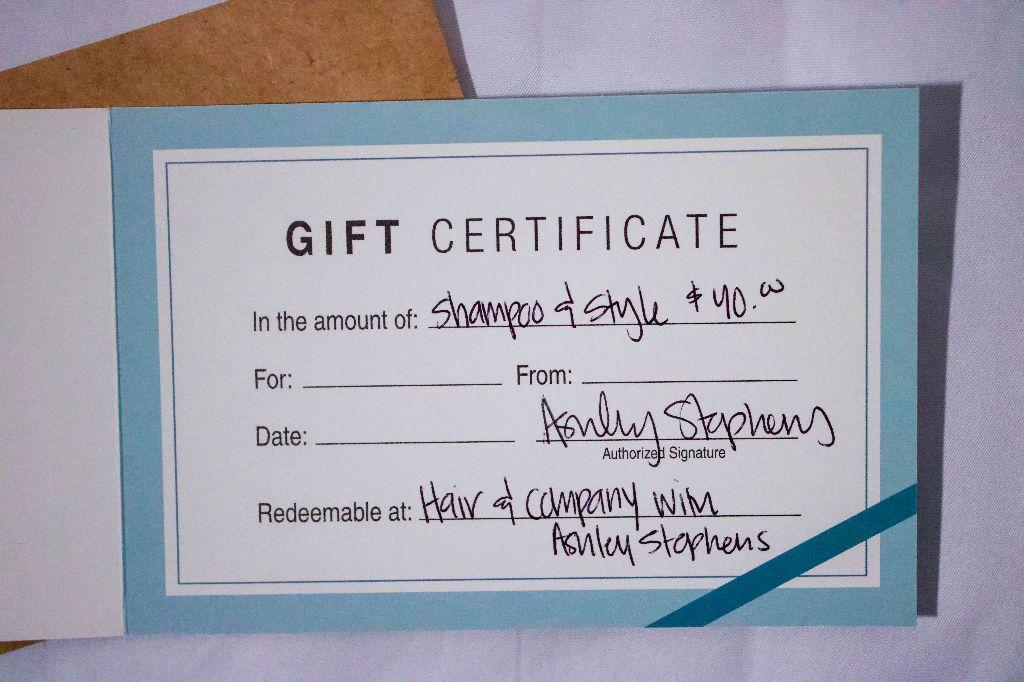 GIFT CERTIFICATE
In the amount of: Shampoo & Style $40.00
For: From:
Date: Ashley Stephens
Authorized Signature
Redeemable at: Hair & Company with
Ashley Stephens